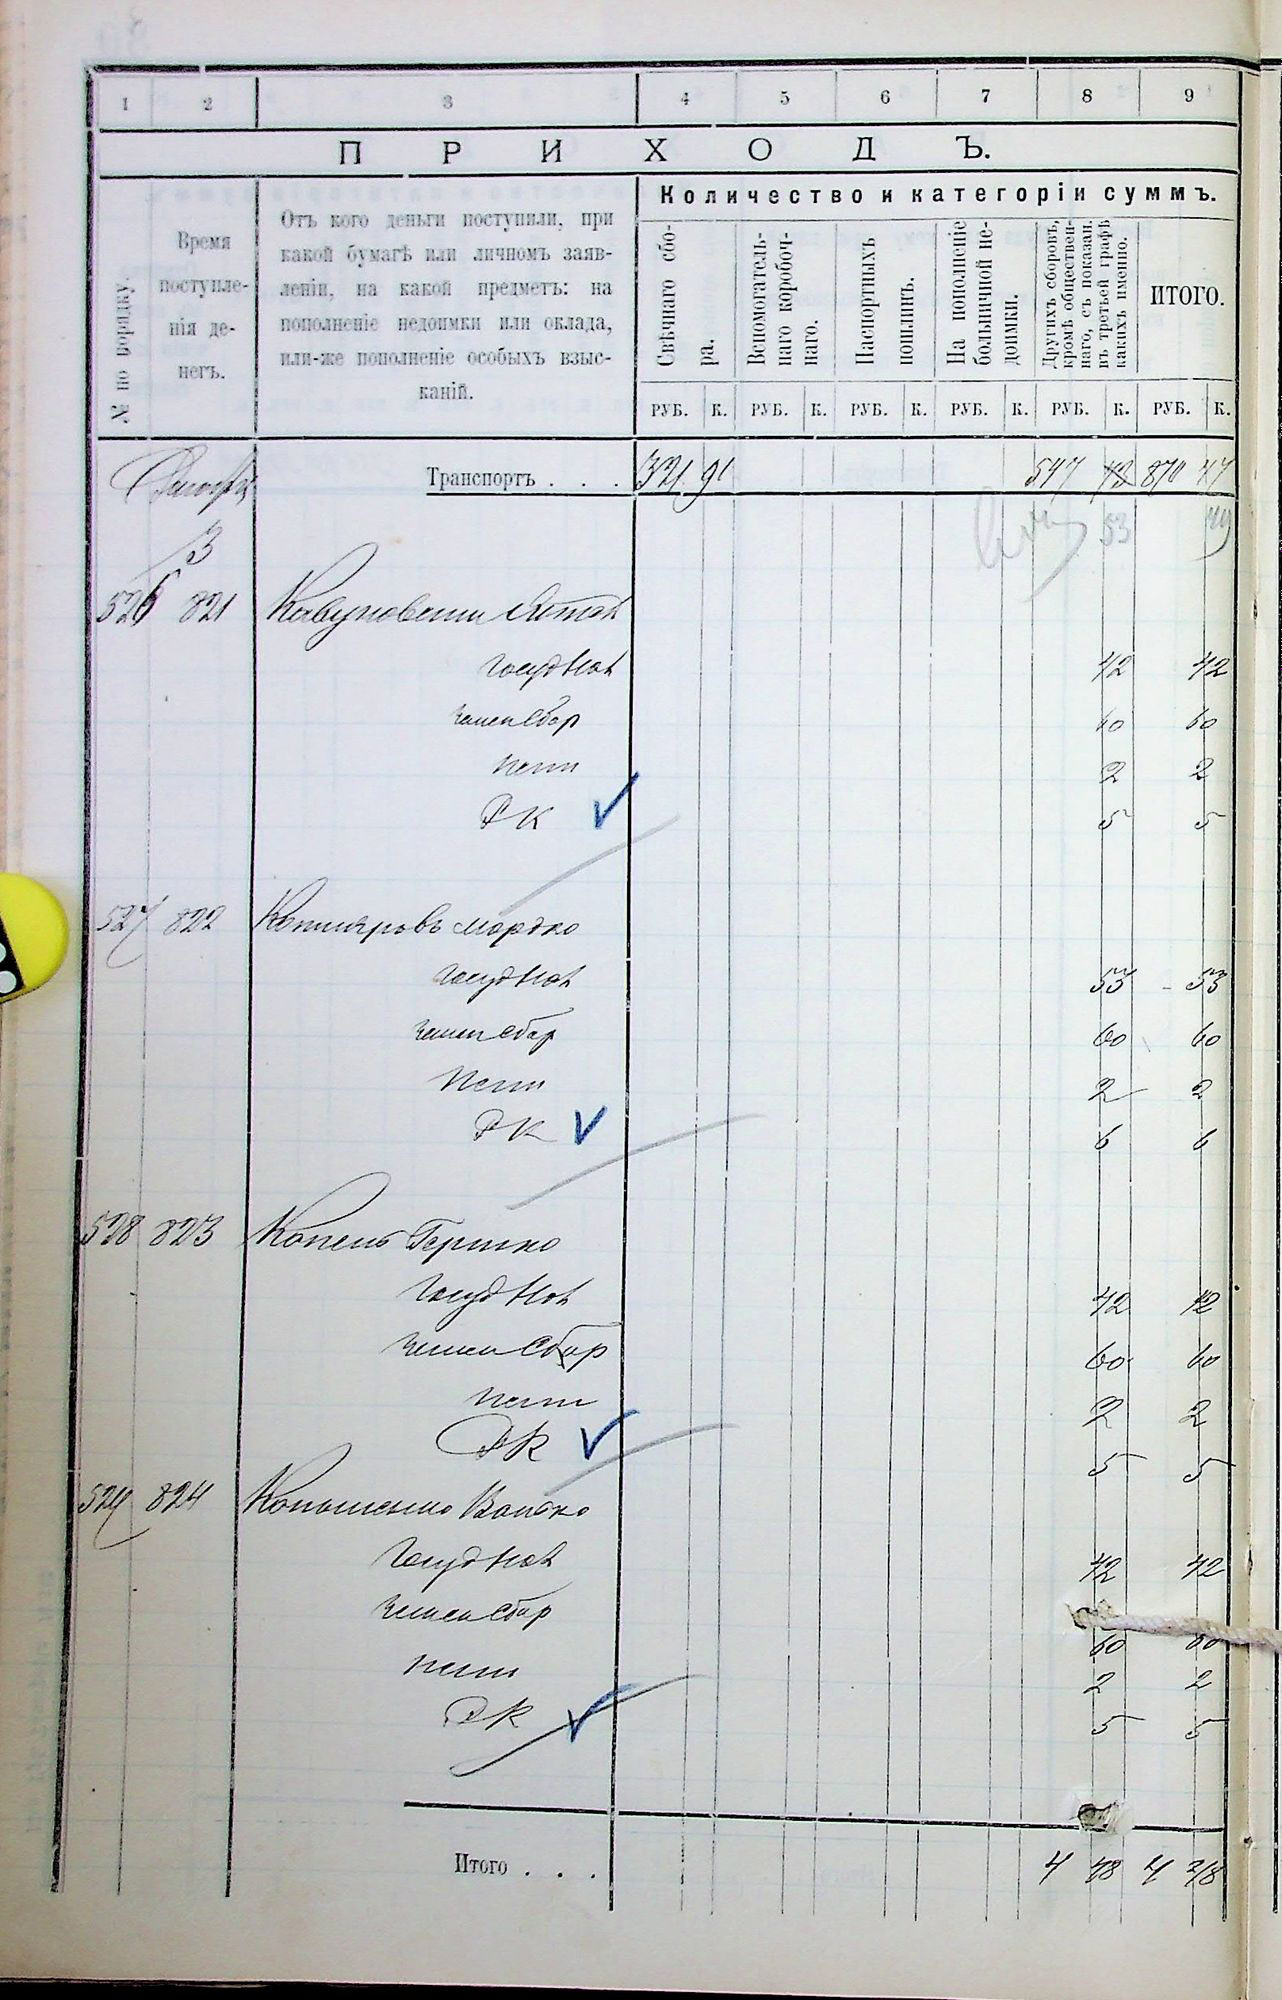 1 2 3 4 5 6 7 8 9
ПРИХОДЪ.
№ по порядку.
Время поступле-
нія де-
негъ.
Отъ кого деньги поступили, при
какой бумагѣ или личномъ заяв-
леніи, на какой предметъ: на
пополненіе недоимки или оклада,
или-же пополненіе особыхъ взыс-
каній.
Количество и категоріи суммъ.
Свѣчнаго сбо-
ра.
Вспомогатель-
наго коробоч-
наго.
Паспортныхъ
пошлинъ.
На пополненіе
больничной не-
доимки.
Другихъ сборовъ,
кромѣ обществен-
наго, съ показан.
въ третьей графѣ
какихъ именно.
ИТОГО.
РУБ. К. РУБ. К. РУБ. К. РУБ. К. РУБ. К. РУБ. К.
Транспортъ . . . 321 91 547 870 47
3
53
526 821
42 42
земск сбор 60 60
пени 2 2
РК 5 5
527 822 Мордко
53 53
земск сбор 60 60
пени 2 2
РК 6 6
528 823 Копель Гершко
42 42
земск сбор 60 60
пени 2 2
РК 5 5
529 824
42 42
земск сбор 60 60
пени 2 2
РК 5 5
Итого . . . 4 48 4 48